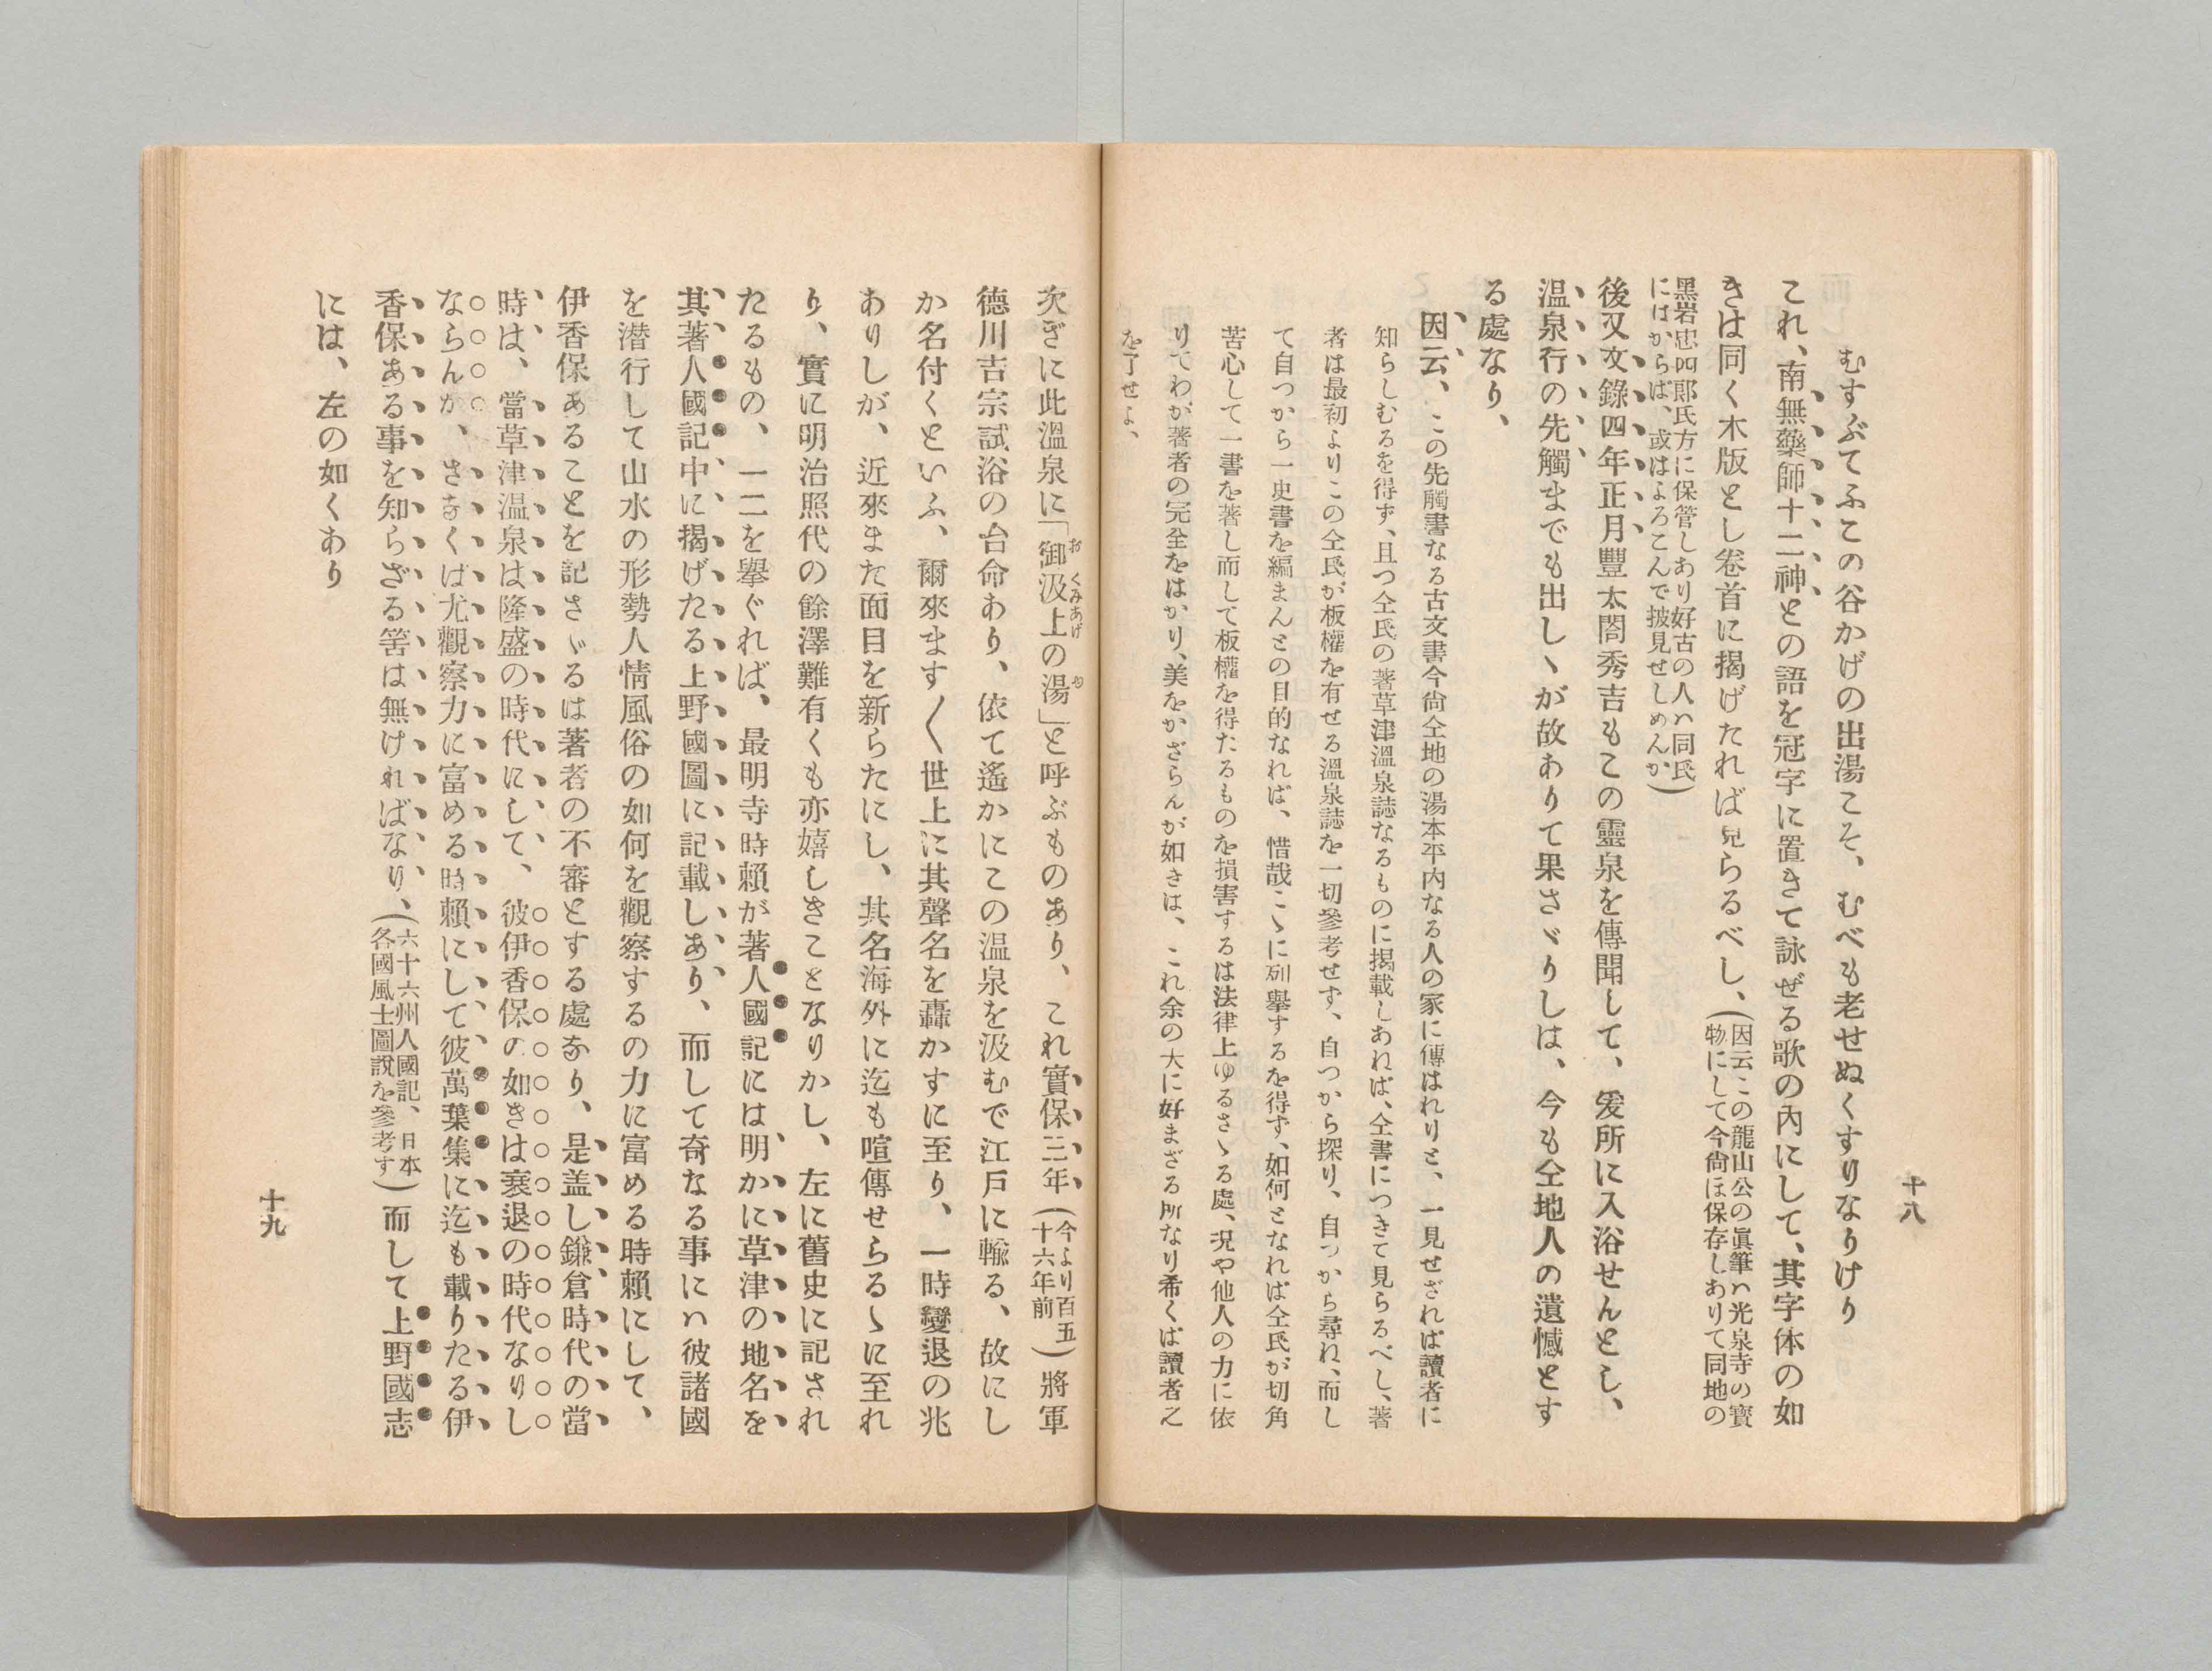 十八
むすぶてふこの谷かげの出湯こそ、むべも老せぬくすりなりけり
これ、南無藥師十二神との語を冠字に置きて詠ぜる歌の內にして、其字体の如
きは同く木版とし卷首に揭げたれば見らるべし、(因云この龍山公の眞筆ハ光泉寺の寳
物にして今尙ほ保存しありて同地の
黑岩忠四郎氏方に保管しあり好古の人ハ同氏
にはからば、或はよろこんで披見せしめんか)
後又文錄四年正月豐太閤秀吉もこの靈泉を傳聞して、爰所に入浴せんとし、
温泉行の先觸までも出しヽが故ありて果さヾりしは、今も仝地人の遺憾とす
る處なり、
因云、この先觸書なる古文書今尙仝地の湯本平内なる人の家に傳はれりと、一見せざれば讀者に
知らしむるを得ず、且つ仝氏の著草津溫泉誌なるものに揭載しあれば、仝書につきて見らるべし、著
者は最初よりこの仝氏が板權を有せる溫泉誌を一切參考せず、自つから探り、自つから尋ね、而し
て自つから一史書を編まんとの目的なれば、惜哉こヽに列擧するを得ず、如何となれば仝氏が切角
苦心して一書を著し而して板權を得たるものを損害するは法律上ゆるさヽる處、况や他人の力に依
りてわが著者の完全をはかり、美をかざらんが如きは、これ余の大に好まざる所なり希くは讀者之
を了せよ、
次ぎに此溫泉に「御汲上の湯」と呼ぶものあり、これ實保三年(今より百五
十六年前)將軍
德川吉宗試浴の台命あり、依て遙かにこの温泉を汲むで江戶に輸る、故にし
か名付くといふ、爾來ます〱世上に其聲名を轟かすに至り、一時變退の兆
ありしが、近來また面目を新らたにし、其名海外に迄も喧傳せらるヽに至れ
り、實に明治照代の餘澤難有くも亦嬉しきことなりかし、左に舊史に記され
たるもの、一二を擧ぐれば、最明寺時賴が著人國記には明かに草津の地名を
其著人國記中に揭げたる上野國圖に記載しあり、而して奇なる事にハ彼諸國
を潜行して山水の形勢人情風俗の如何を觀察するの力に富める時賴にして、
伊香保あることを記さヾるは著者の不審とする處なり、是盖し鎌倉時代の當
時は、當草津温泉は隆盛の時代にして、彼伊香保の如きは衰退の時代なりし
ならんか、さなくば尤觀察力に富める時賴にして彼萬葉集に迄も載りたる伊
香保ある事を知らざる筈は無ければなり、(六十六州人國記、日本
各國風土圖說を參考す)而して上野國志
には、左の如くあり
十九